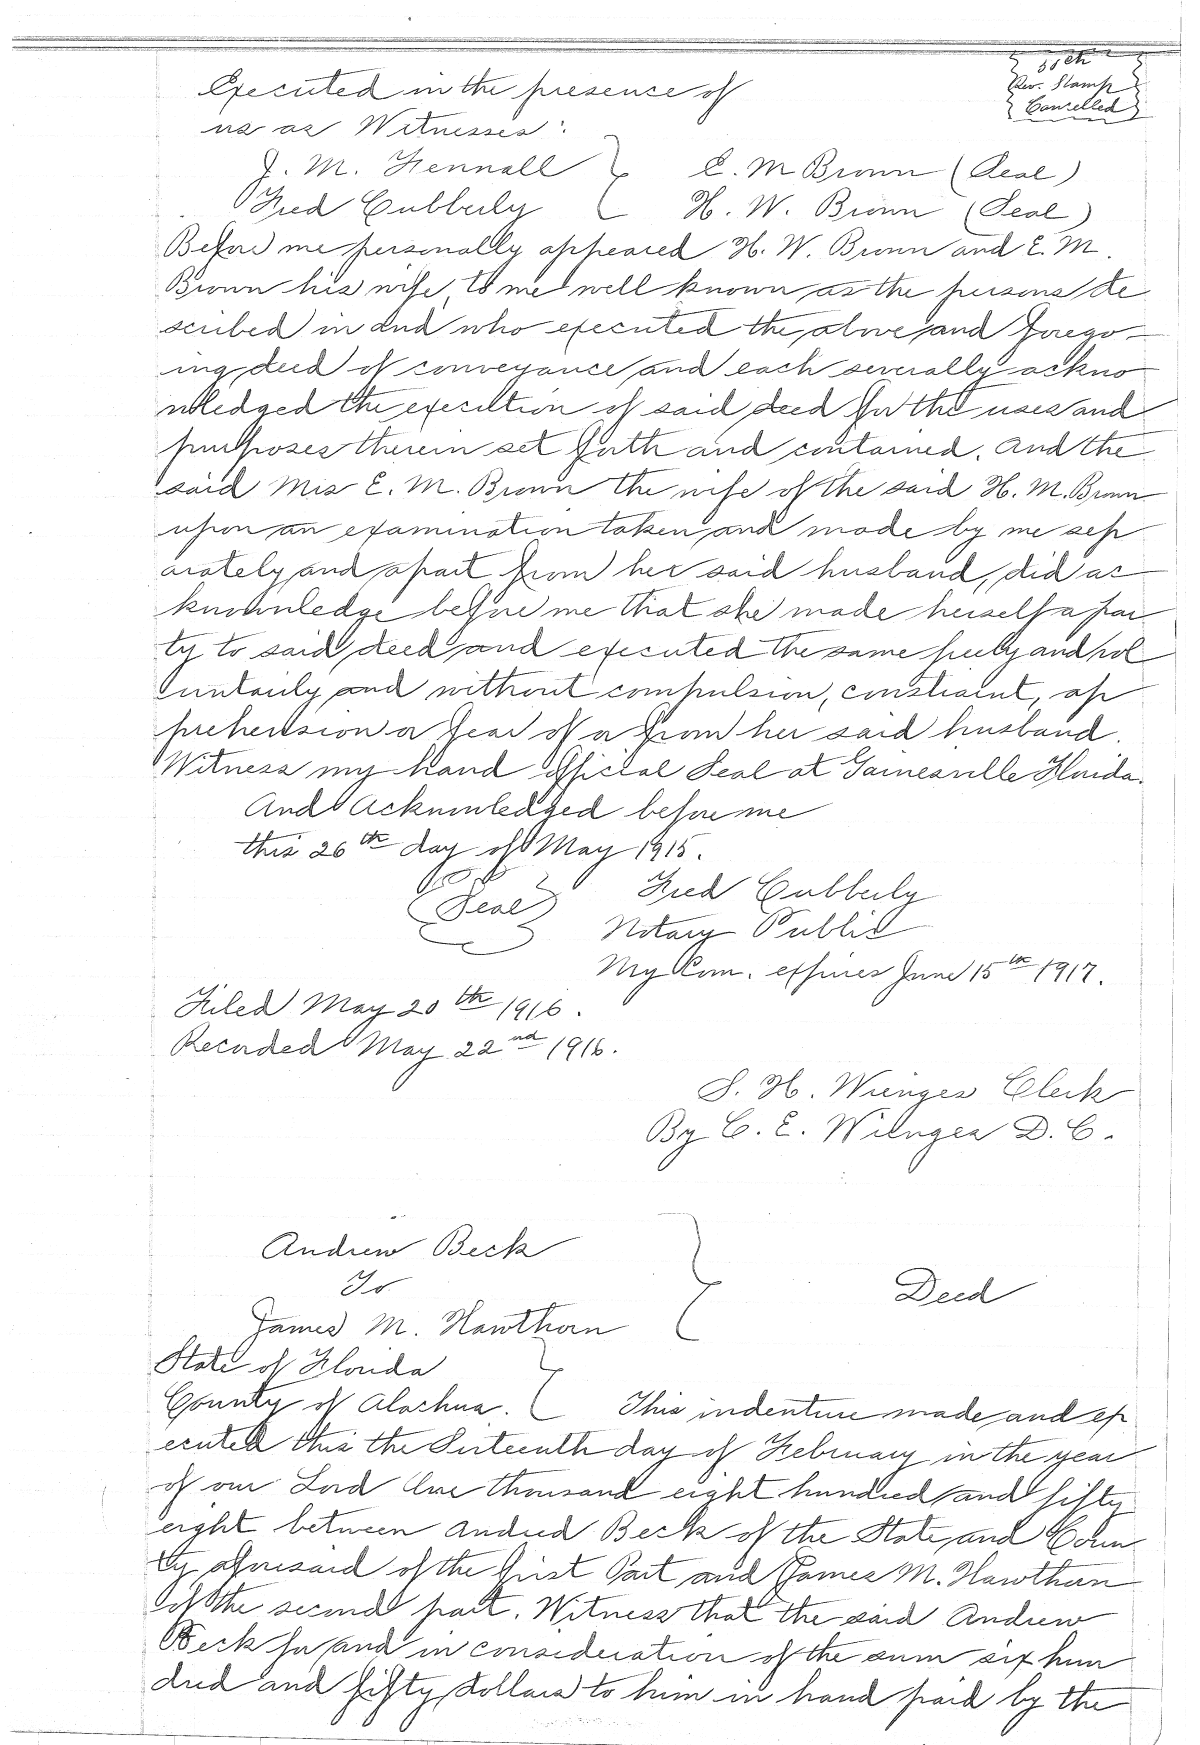 55ct
Rev. Stamp
Cancelled
Executed in the presence of
us as Witnesses:
J. M. Fennall } E. M Brown (Seal)
Fred Cubberly } H. W. Brown (Seal)
Before me personally appeared H. W. Brown and E. M.
Brown his wife, to me well known as the persons de
scribed in and who executed the above and forego-
ing deed of conveyance and each severally ackno
wledged the execution of said deed for the uses and
purposes therein set forth and contained. And the
said Mrs E. M. Brown the wife of the said H. M. Brown
upon an examination taken and made by me sep
arately and apart from her said husband, did ac
knowledge before me that she made herself a par
ty to said deed and executed the same freely and vol
untarily and without compulsion, constraint, ap
prehension or fear of or from her said husband.
Witness my hand official Seal at Gainesville Florida.
And Acknowledged before me
this 26th day of May 1915.
(Seal) Fred Cubberly
Notary Public
My Com. expires June 15th 1917.
Filed May 20th 1916.
Recorded May 22nd 1916.
S. H. Wienges Clerk
By C. E. Wienges D. C.
Andrew Beck
To } Deed
James M. Hawthorn
State of Florida
County of Alachua. } This indenture made and ex
ecuted this the Sixteenth day of February in the year
of our Lord One thousand eight hundred and fifty
eight between Andred Beck of the State and Coun
ty aforesaid of the first Part and James M. Hawthorn
of the second part. Witness that the said Andrew
Beck for and in consideration of the sum six hun
dred and fifty dollars to him in hand paid by the